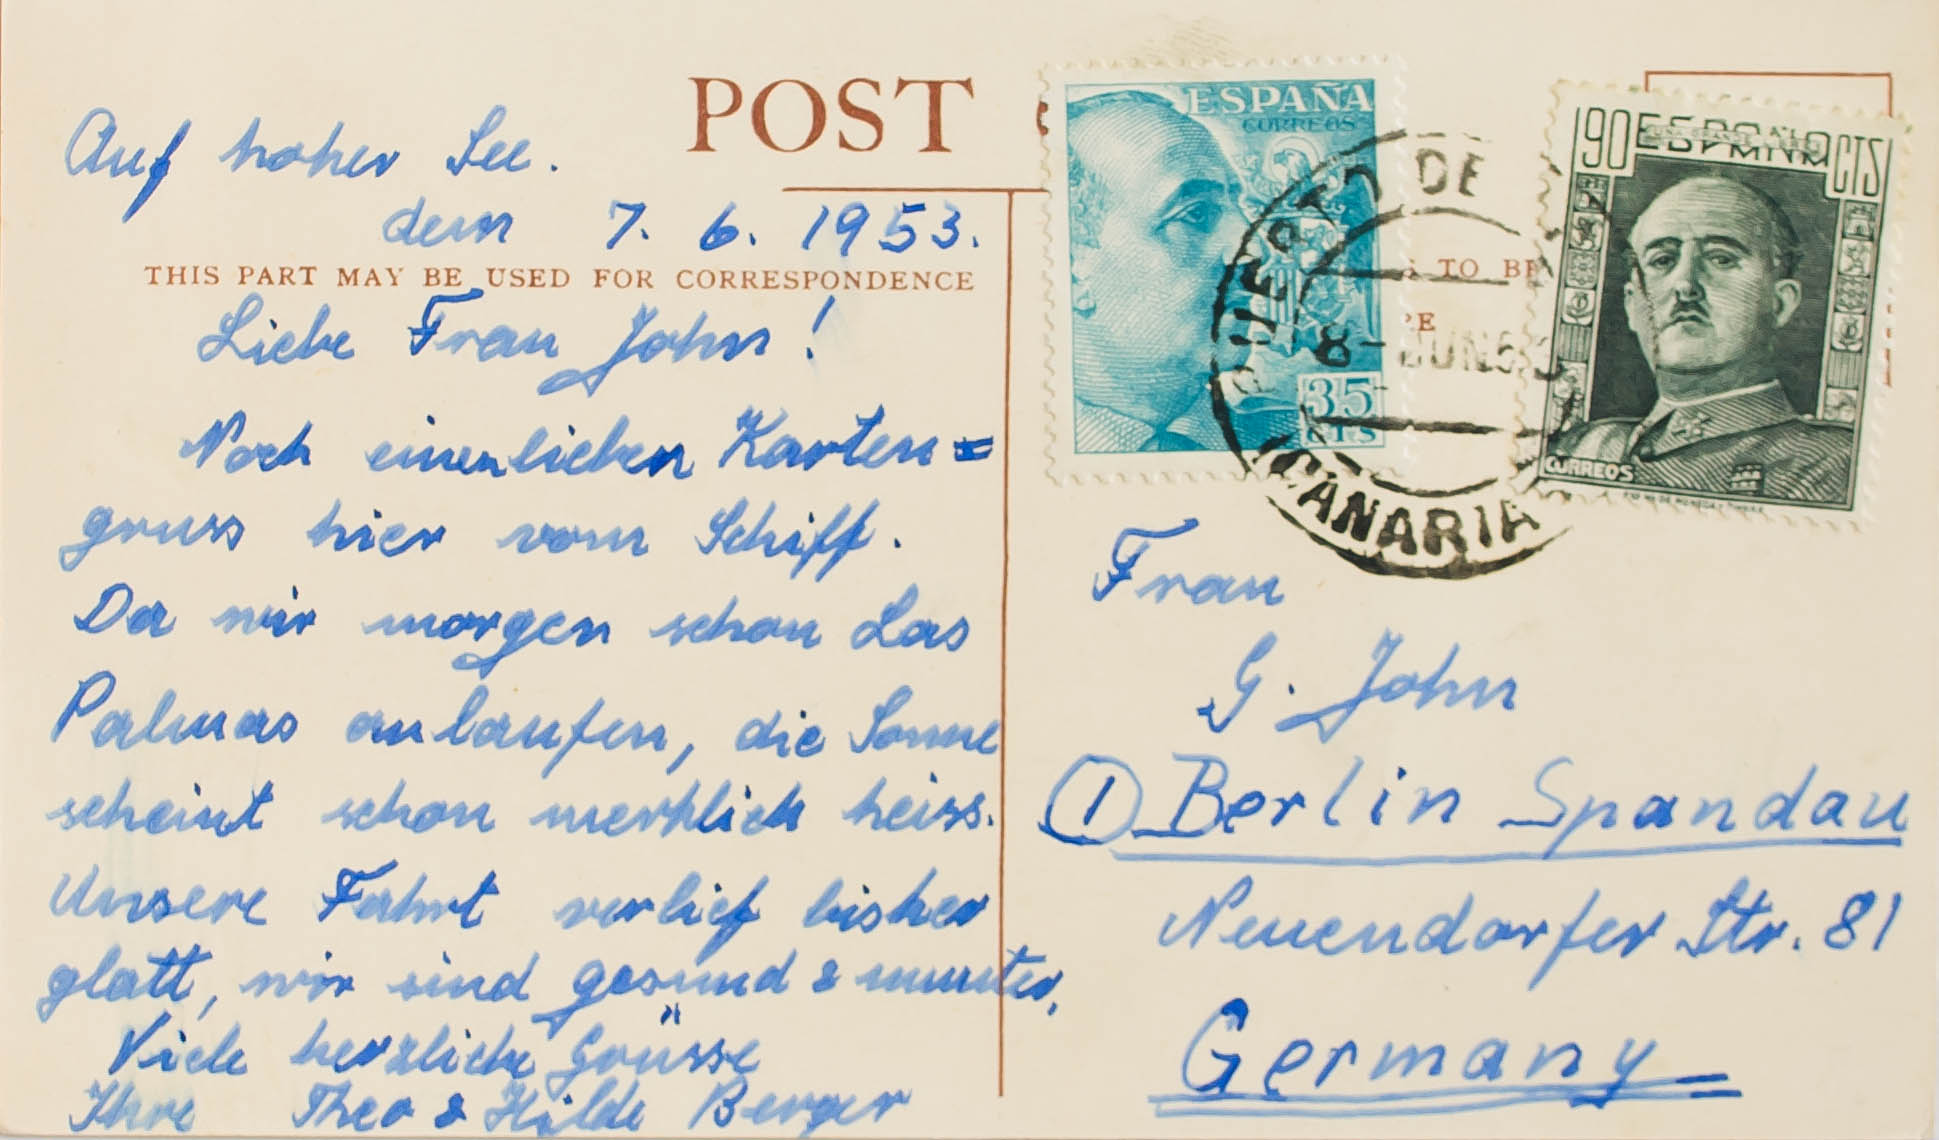 POST
Auf hoher See.
den 7. 6. 1953.
THIS PART MAY BE USED FOR CORRESPONDENCE
Liebe Frau John!
Noch einen lieben Karten=
gruss hier vom Schiff.
Da wir morgen schon Las
Palmas anlaufen, die Sonne
scheint schon merklich heiss.
Unsere Fahrt verlief bisher
glatt, wir sind gesund & munter,
Viele herzliche Grüsse
Ihre Theo & Hilde Berger
ESPAÑA
CORREOS
35
CTS
90 ESPAÑA CTS
CORREOS
PUERTO DE
8 - JUN 53
CANARIA
TO BE
Frau
G. John
1 Berlin Spandau
Neuendorfer Str. 81
Germany